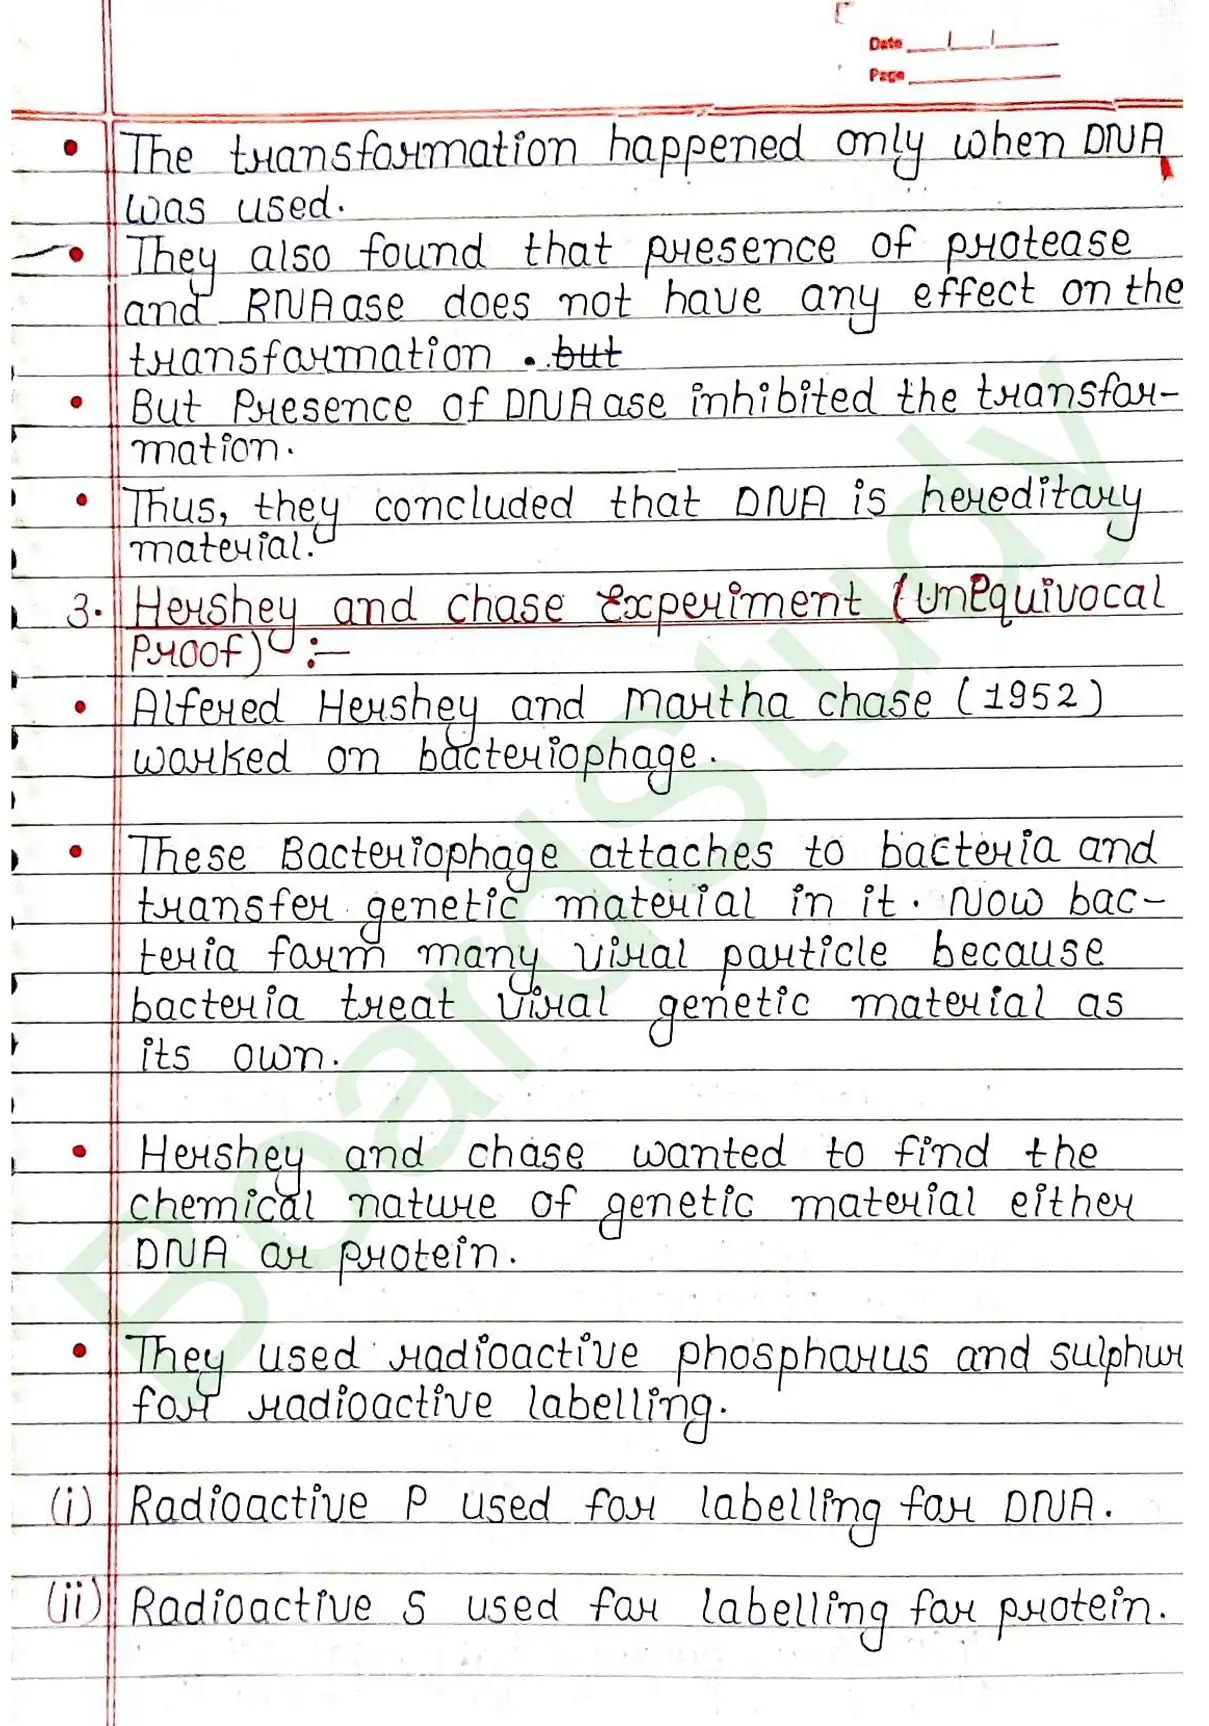 Date
Page
• The transformation happened only when DNA
was used.
• They also found that presence of protease
and RNAase does not have any effect on the
transformation . but
• But Presence of DNAase inhibited the transfor-
mation.
• Thus, they concluded that DNA is hereditary
material.
3. Hershey and chase Experiment (UnEquivocal
Proof) :-
• Alfered Hershey and Martha chase (1952)
worked on bacteriophage.
• These Bacteriophage attaches to bacteria and
transfer genetic material in it. Now bac-
teria form many viral particle because
bacteria treat viral genetic material as
its own.
• Hershey and chase wanted to find the
chemical nature of genetic material either
DNA or protein.
• They used radioactive phosphorus and sulphur
for radioactive labelling.
(i) Radioactive P used for labelling for DNA.
(ii) Radioactive S used for labelling for protein.
BoardStudy